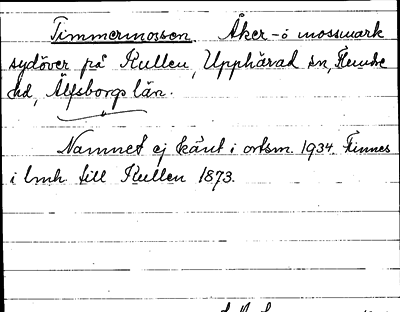 Timmermossen Åker- o mossmark
sydöver på Kullen, Upphärad sn, Flundre
hd, Älfsborgs län.
Namnet ej känt i ortsm. 1934. Finnes
i lmh till Kullen 1873.